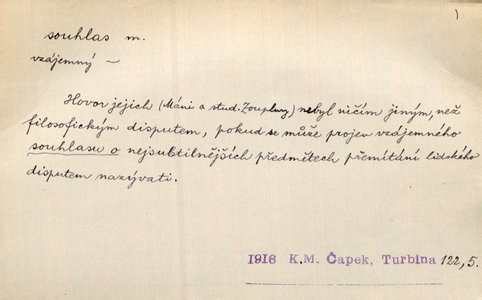 souhlas m.
vzájemný ~
Hovor jejich (Máni a stud. Zouplny) nebyl ničím jiným, než
filosofickým disputem, pokud se může projev vzájemného
souhlasu o nejsubtilnějších předmětech přemítání lidského
disputem nazývati.
1916 K.M. Čapek, Turbina 122,5.